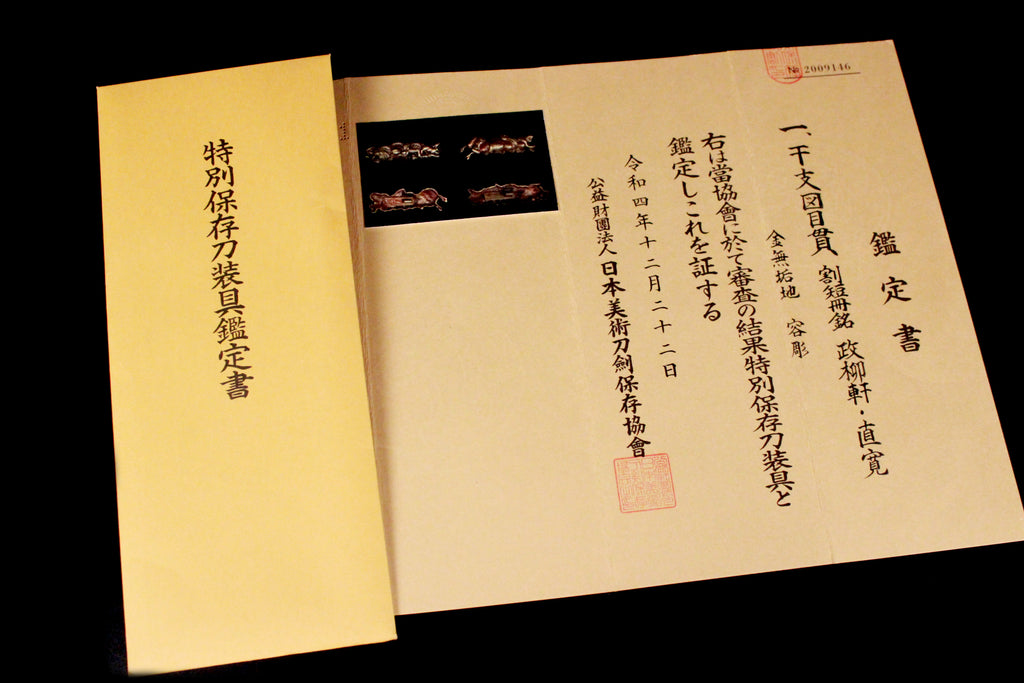 特別保存刀装具鑑定書
№ 2009146
鑑定書
一、干支図目貫 割短冊銘 政柳軒・直寛
金無垢地 容彫
右は當協會に於て審査の結果特別保存刀装具と
鑑定しこれを証する
令和四年十二月二十二日
公益財團法人 日本美術刀劍保存協會